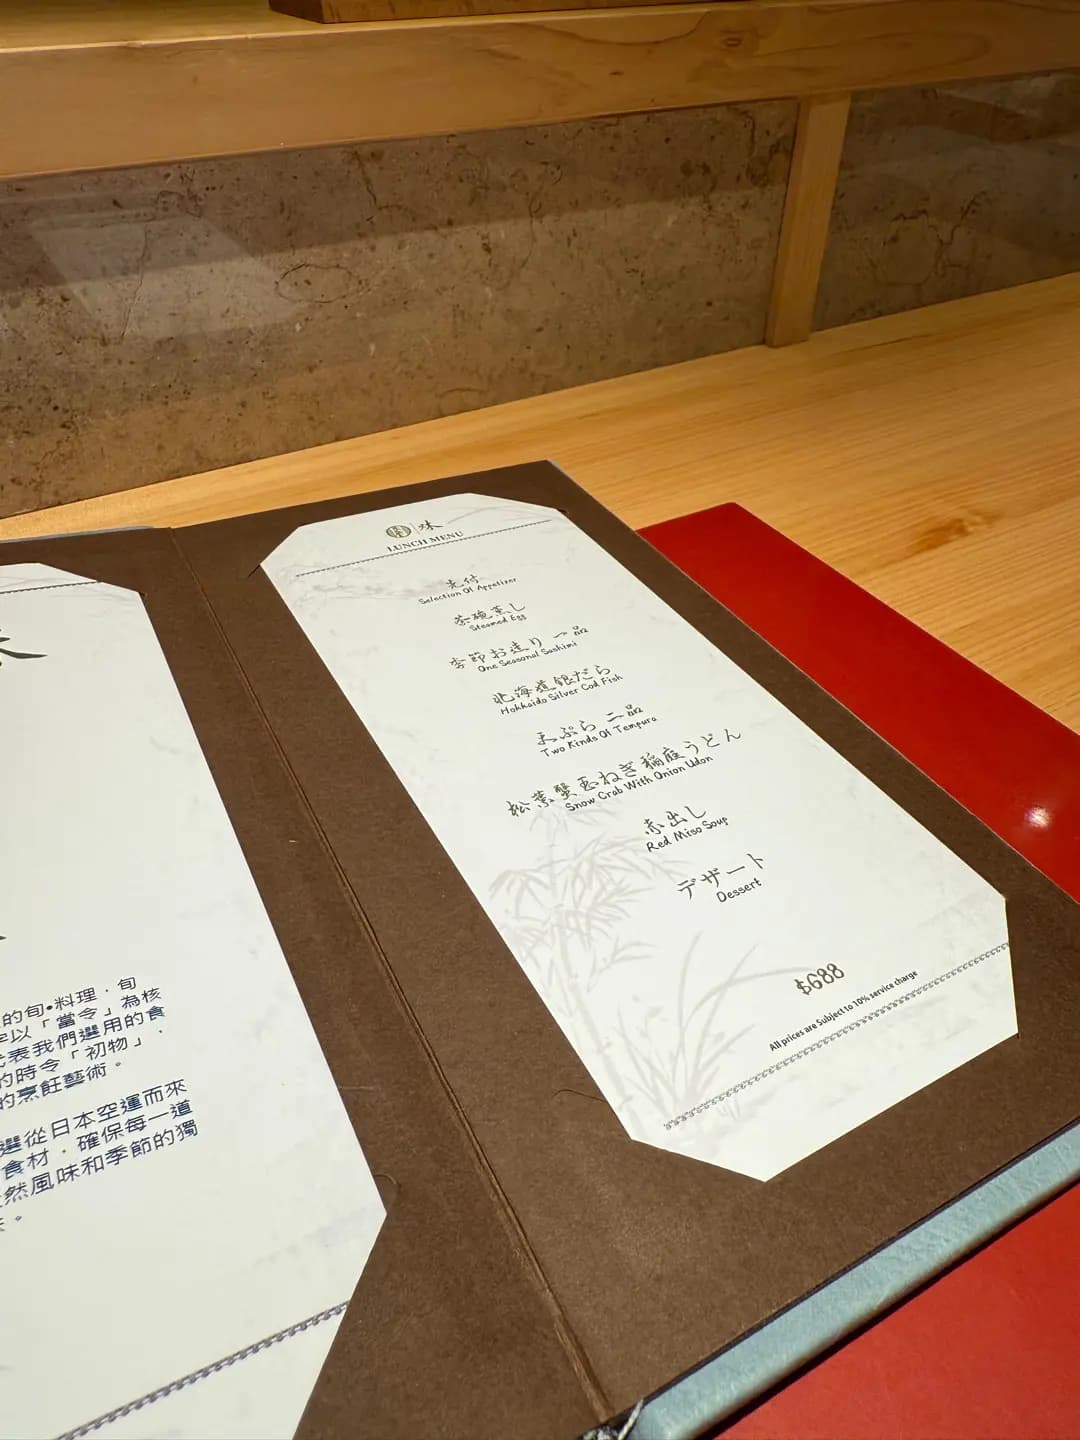 的旬•料理，旬
以「當令」為核
代表我們選用的食
的時令「初物」，
的烹飪藝術。
選從日本空運而來
食材，確保每一道
然風味和季節的獨
。
味
LUNCH MENU
先付
Selection Of Appetizer
茶碗蒸し
Steamed Egg
季節お造り 一品
One Seasonal Sashimi
北海道銀だら
Hokkaido Silver Cod Fish
天ぷら 二品
Two Kinds Of Tempura
松葉蟹玉ねぎ稲庭うどん
Snow Crab With Onion Udon
赤出し
Red Miso Soup
デザート
Dessert
$688
All prices are Subject to 10% service charge